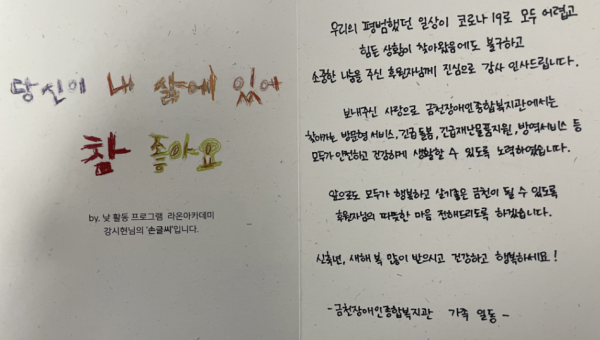 당신이 내 삶에 있어
참 좋아요
by. 낮 활동 프로그램 라온아카데미
강시현님의 '손글씨'입니다.
우리의 평범했던 일상이 코로나 19로 모두 어렵고
힘든 상황이 찾아왔음에도 불구하고
소중한 나눔을 주신 후원자님께 진심으로 감사 인사드립니다.
보내주신 사랑으로 금천장애인종합복지관에서는
찾아가는 방문형 서비스, 긴급돌봄, 긴급재난물품지원, 방역서비스 등
모두가 안전하고 건강하게 생활할 수 있도록 노력하였습니다.
앞으로도 모두가 행복하고 살기좋은 금천이 될 수 있도록
후원자님의 따뜻한 마음 전해드리도록 하겠습니다.
신축년, 새해 복 많이 받으시고 건강하고 행복하세요!
- 금천장애인종합복지관 가족 일동 -